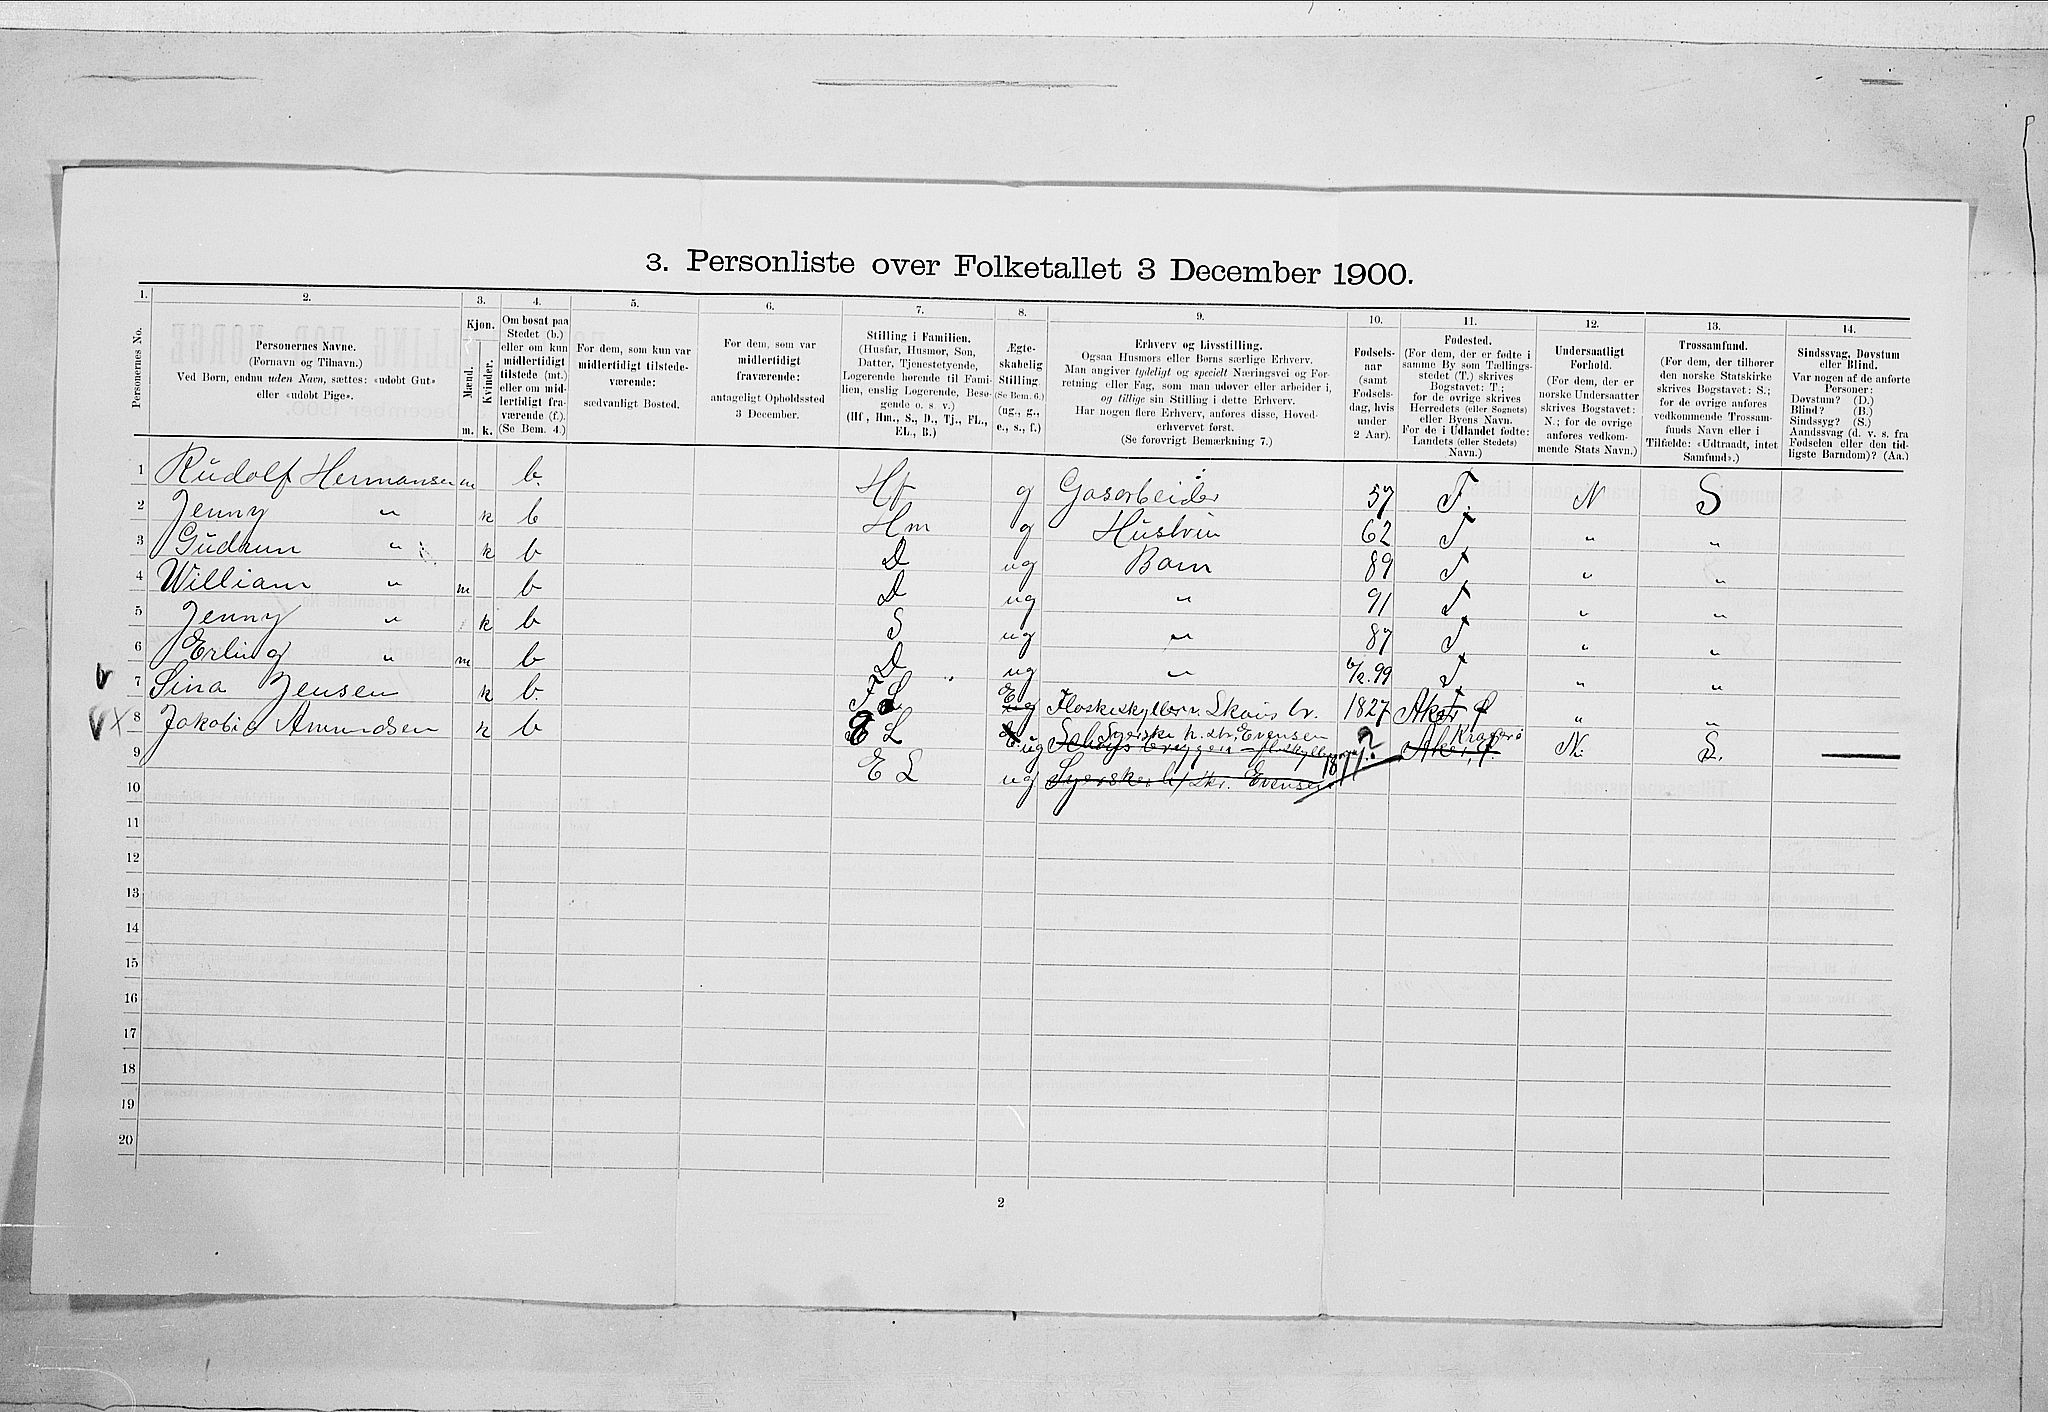 3. Personliste over Folketallet 3 December 1900.
1. 2. 3. 4. 5. 6. 7. 8. 9. 10. 11. 12. 13. 14.
Personernes No.
Personernes Navne.
(Fornavn og Tilnavn.)
Ved Børn, endnu uden Navn, sættes: «udøbt Gut»
eller «udøbt Pige».
Kjøn.
Mænd.
Kvinder.
m. k.
Om bosat paa
Stedet (b.)
eller om kun
midlertidigt
tilstede (mt.)
eller om mid-
lertidigt fra-
værende (f.).
(Se Bem. 4.)
For dem, som kun var
midlertidigt tilstede-
værende:
sædvanligt Bosted.
For dem, som var
midlertidigt
fraværende:
antageligt Opholdssted
3 December.
Stilling i Familien.
(Husfar, Husmor, Søn,
Datter, Tjenestetyende,
Logerende hørende til Fami-
lien, enslig Logerende, Besø-
gende o. s. v.)
(Hf, Hm., S., D., Tj., FL.,
EL., B.)
Ægte-
skabelig
Stilling.
(Se Bem. 6.)
(ug., g.,
e., s., f.)
Erhverv og Livsstilling.
Ogsaa Husmors eller Børns særlige Erhverv.
Man angiver tydeligt og specielt Næringsvei og For-
retning eller Fag, som man udøver eller arbeider i,
og tillige sin Stilling i dette Erhverv.
Har nogen flere Erhverv, anføres disse, Hoved-
erhvervet først.
(Se forøvrigt Bemærkning 7.)
Fødsels-
aar
(samt
Fødsels-
dag, hvis
under
2 Aar).
Fødested.
(For dem, der er fødte i
samme By som Tællings-
stedet (T.) skrives
Bogstavet: T.;
for de øvrige skrives
Herredets (eller Sognets)
eller Byens Navn.
For de i Udlandet fødte:
Landets (eller Stedets)
Navn.)
Undersaatligt
Forhold.
(For dem, der er
norske Undersaatter
skrives Bogstavet:
N.; for de øvrige
anføres vedkom-
mende Stats Navn.)
Trossamfund.
(For dem, der tilhører
den norske Statskirke
skrives Bogstavet: S.;
for de øvrige anføres
vedkommende Trossam-
funds Navn eller i
Tilfælde: «Udtraadt, intet
Samfund».)
Sindssvag, Døvstum
eller Blind.
Var nogen af de anførte
Personer:
Døvstum? (D.)
Blind? (B.)
Sindssyg? (S.)
Aandssvag (d. v. s. fra
Fødselen eller den tid-
ligste Barndom)? (Aa.)
1 Rudolf Hermansen m b. Hf g Gasarbeider 57 T. N S
2 Jenny " k b Hm g Hustru 62 T. " "
3 Gudrun " k b D ug Barn 89 T. " "
4 William " m b D ug " 91 T. " "
5 Jenny " k b S ug " 87 T. " "
6 Erling " m b D ug " 99 T. " "
7 Sina Jensen k b. L E Flaskeskyller v. Skois br. 1827 Aker " "
8 Jakobia Amundsen k b E L ug Syerske h. skr. Evensen 1877? Kragerø N. S.
9 E L ug Syerske h/ skr. Evensen
10
11
12
13
14
15
16
17
18
19
20
2